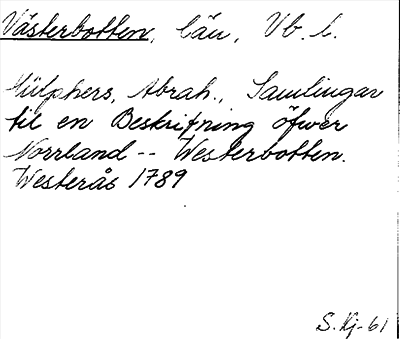 Västerbotten, län, Vb. l.
Hülphers, Abrah., Samlingar
til en Beskrifning öfwer
Norrland -- Westerbotten.
Westerås 1789
S. Kj-61